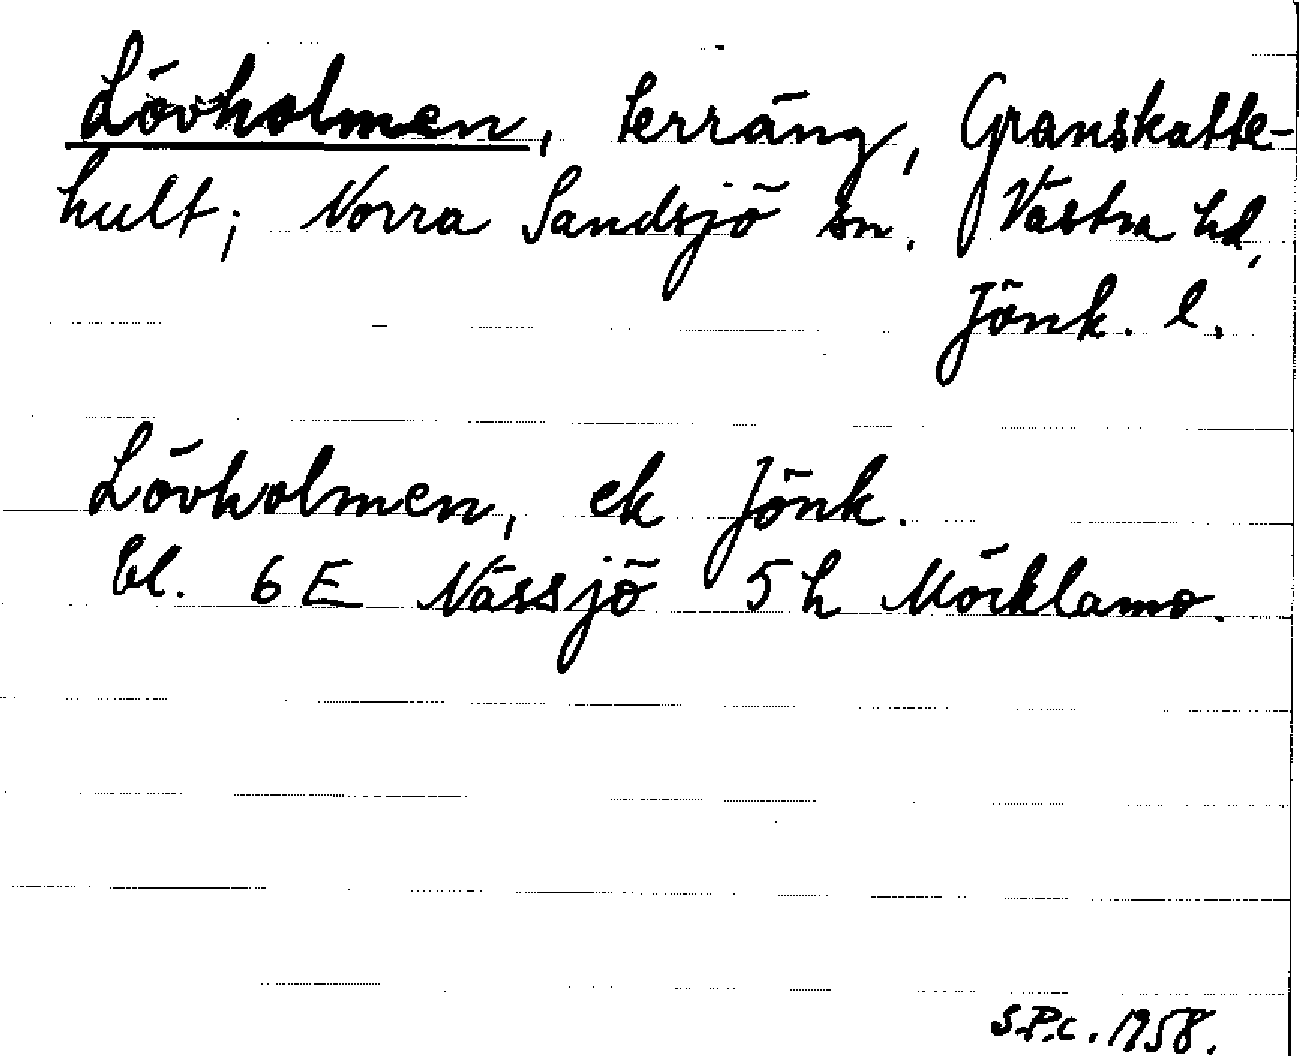 Lövholmen, terräng, Granskatte-
hult; Norra Sandsjö sn. Västra hd,
Jönk. l.
Lövholmen, ek Jönk.
bl. 6 E Nässjö 5 h Möcklamo.
S.P.c. 1958.